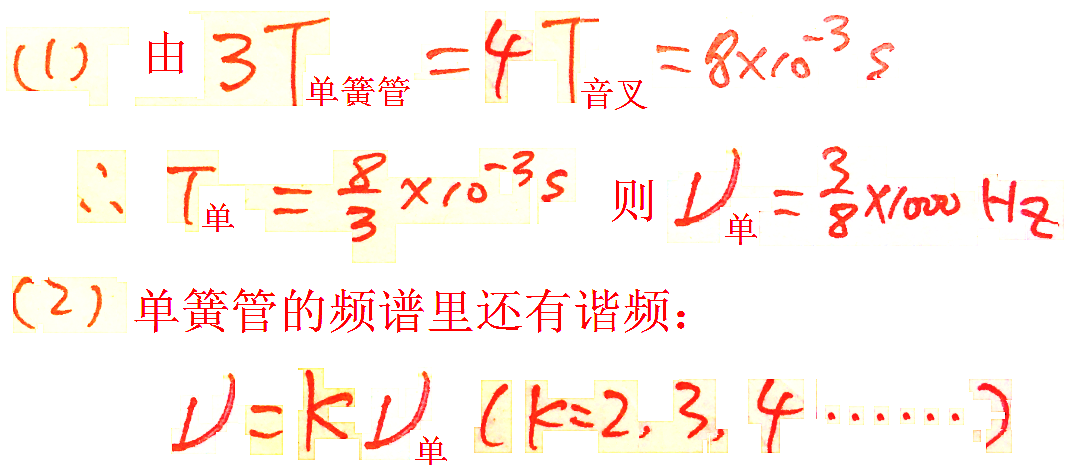 (1) 由 3T单簧管 = 4T音叉 = 8×10⁻³ s
∴ T单 = 8/3 ×10⁻³ s 则 ν单 = 3/8 ×1000 Hz
(2) 单簧管的频谱里还有谐频：
ν = kν单 (k=2, 3, 4 ⋯⋯)